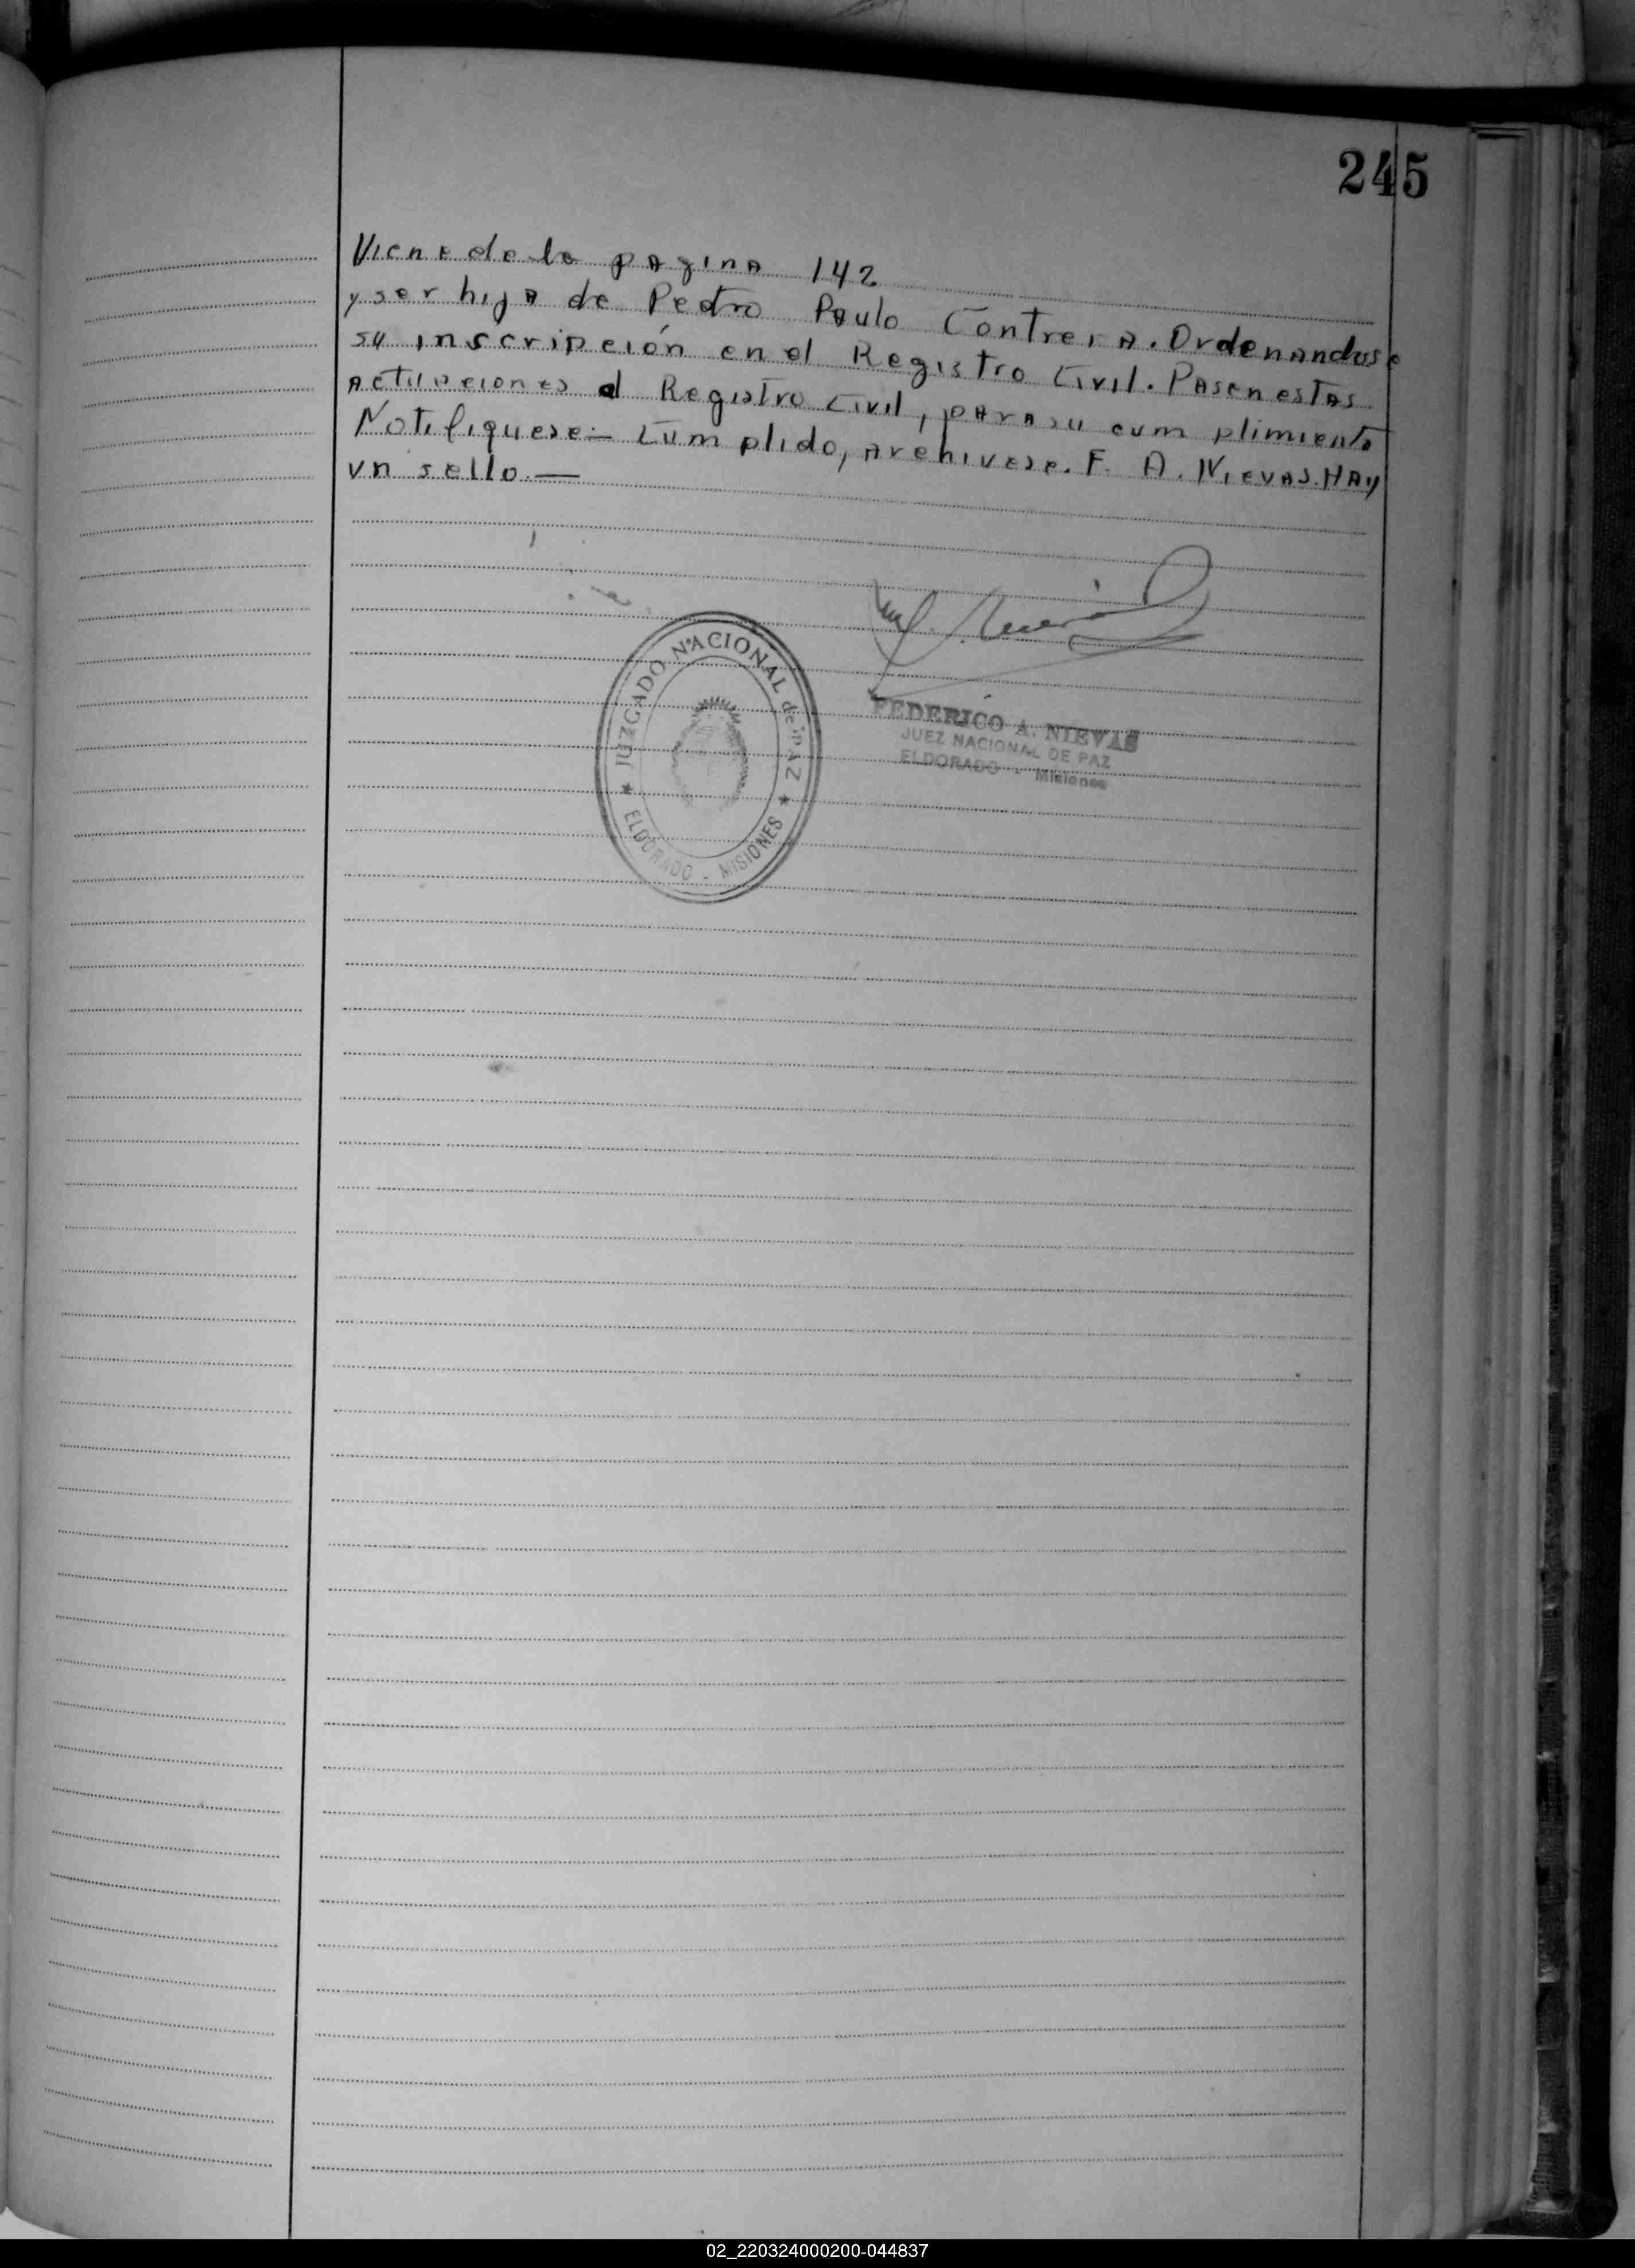 245
Viene de la pagina 142
y ser hija de Pedro Paulo Contreira. Ordenandose
su inscripción en el Registro Civil. Pasen estas
actuaciones al Registro Civil, para su cumplimiento
Notifiquese.- Cumplido, archivese. F. A. Nievas. Hay
un sello.—
JUZGADO NACIONAL de PAZ
★ ELDORADO - MISIONES ★
FEDERICO A. NIEVAS
JUEZ NACIONAL DE PAZ
ELDORADO - Misiones
02_220324000200-044837